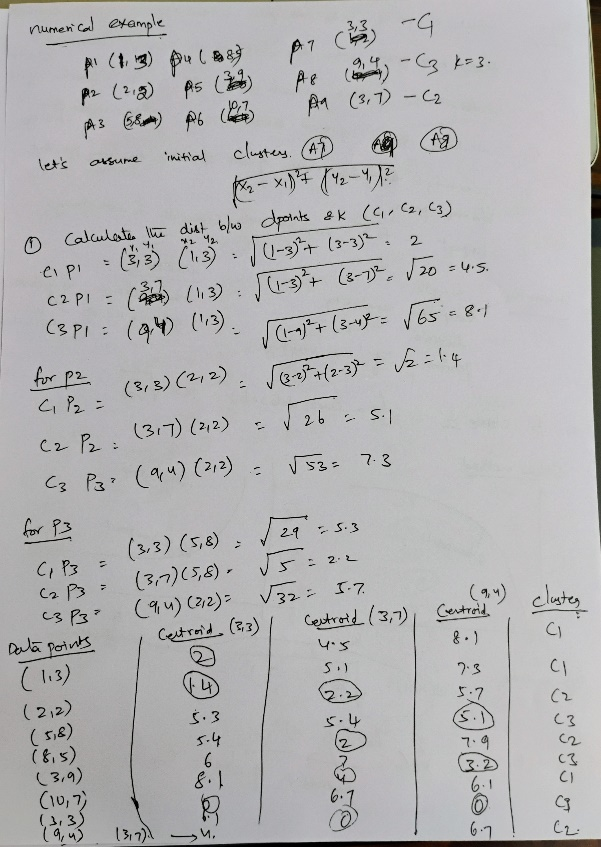 numerical example
P1 (1,3) P4 (8,5) P7 (3,3) - C1
P2 (2,2) P5 (3,9) P8 (9,4) - C3 K=3.
P3 (5,8) P6 (10,7) P9 (3,7) - C2
let's assume initial clusters. A7 A9
√(x2 - x1)²+ (y2 - y1)²
① Calculate the dist b/w dpoints & K (C1, C2, C3)
x1 y1 x2 y2
C1 P1 = (3,3) (1,3) = √(1-3)²+ (3-3)² = 2
C2 P1 = (3,7) (1,3) = √(1-3)²+ (3-7)² = √20 = 4.5.
C3 P1 = (9,4) (1,3) = √(1-9)²+ (3-4)² = √65 = 8.1
for P2
C1 P2 = (3,3) (2,2) = √(3-2)²+(2-3)² = √2 = 1.4
C2 P2 = (3,7) (2,2) = √26 = 5.1
C3 P3 = (9,4) (2,2) = √53 = 7.3
for P3
C1 P3 = (3,3) (5,8) = √29 = 5.3
C2 P3 = (3,7) (5,8) = √5 = 2.2
C3 P3 = (9,4) (2,2) = √32 = 5.7
Data points Centroid (3,3) Centroid (3,7) (9,4) Centroid Cluster
(1,3) 2 4.5 8.1 C1
(2,2) 1.4 5.1 7.3 C1
(5,8) 5.3 2.2 5.7 C2
(8,5) 5.4 5.4 5.1 C3
(3,9) 6 2 7.9 C2
(10,7) 8.1 7 3.2 C3
(3,3) 4 6.1 C1
(9,4) 6.7 0 C3
(3,7) → 4. 0 6.7 C2